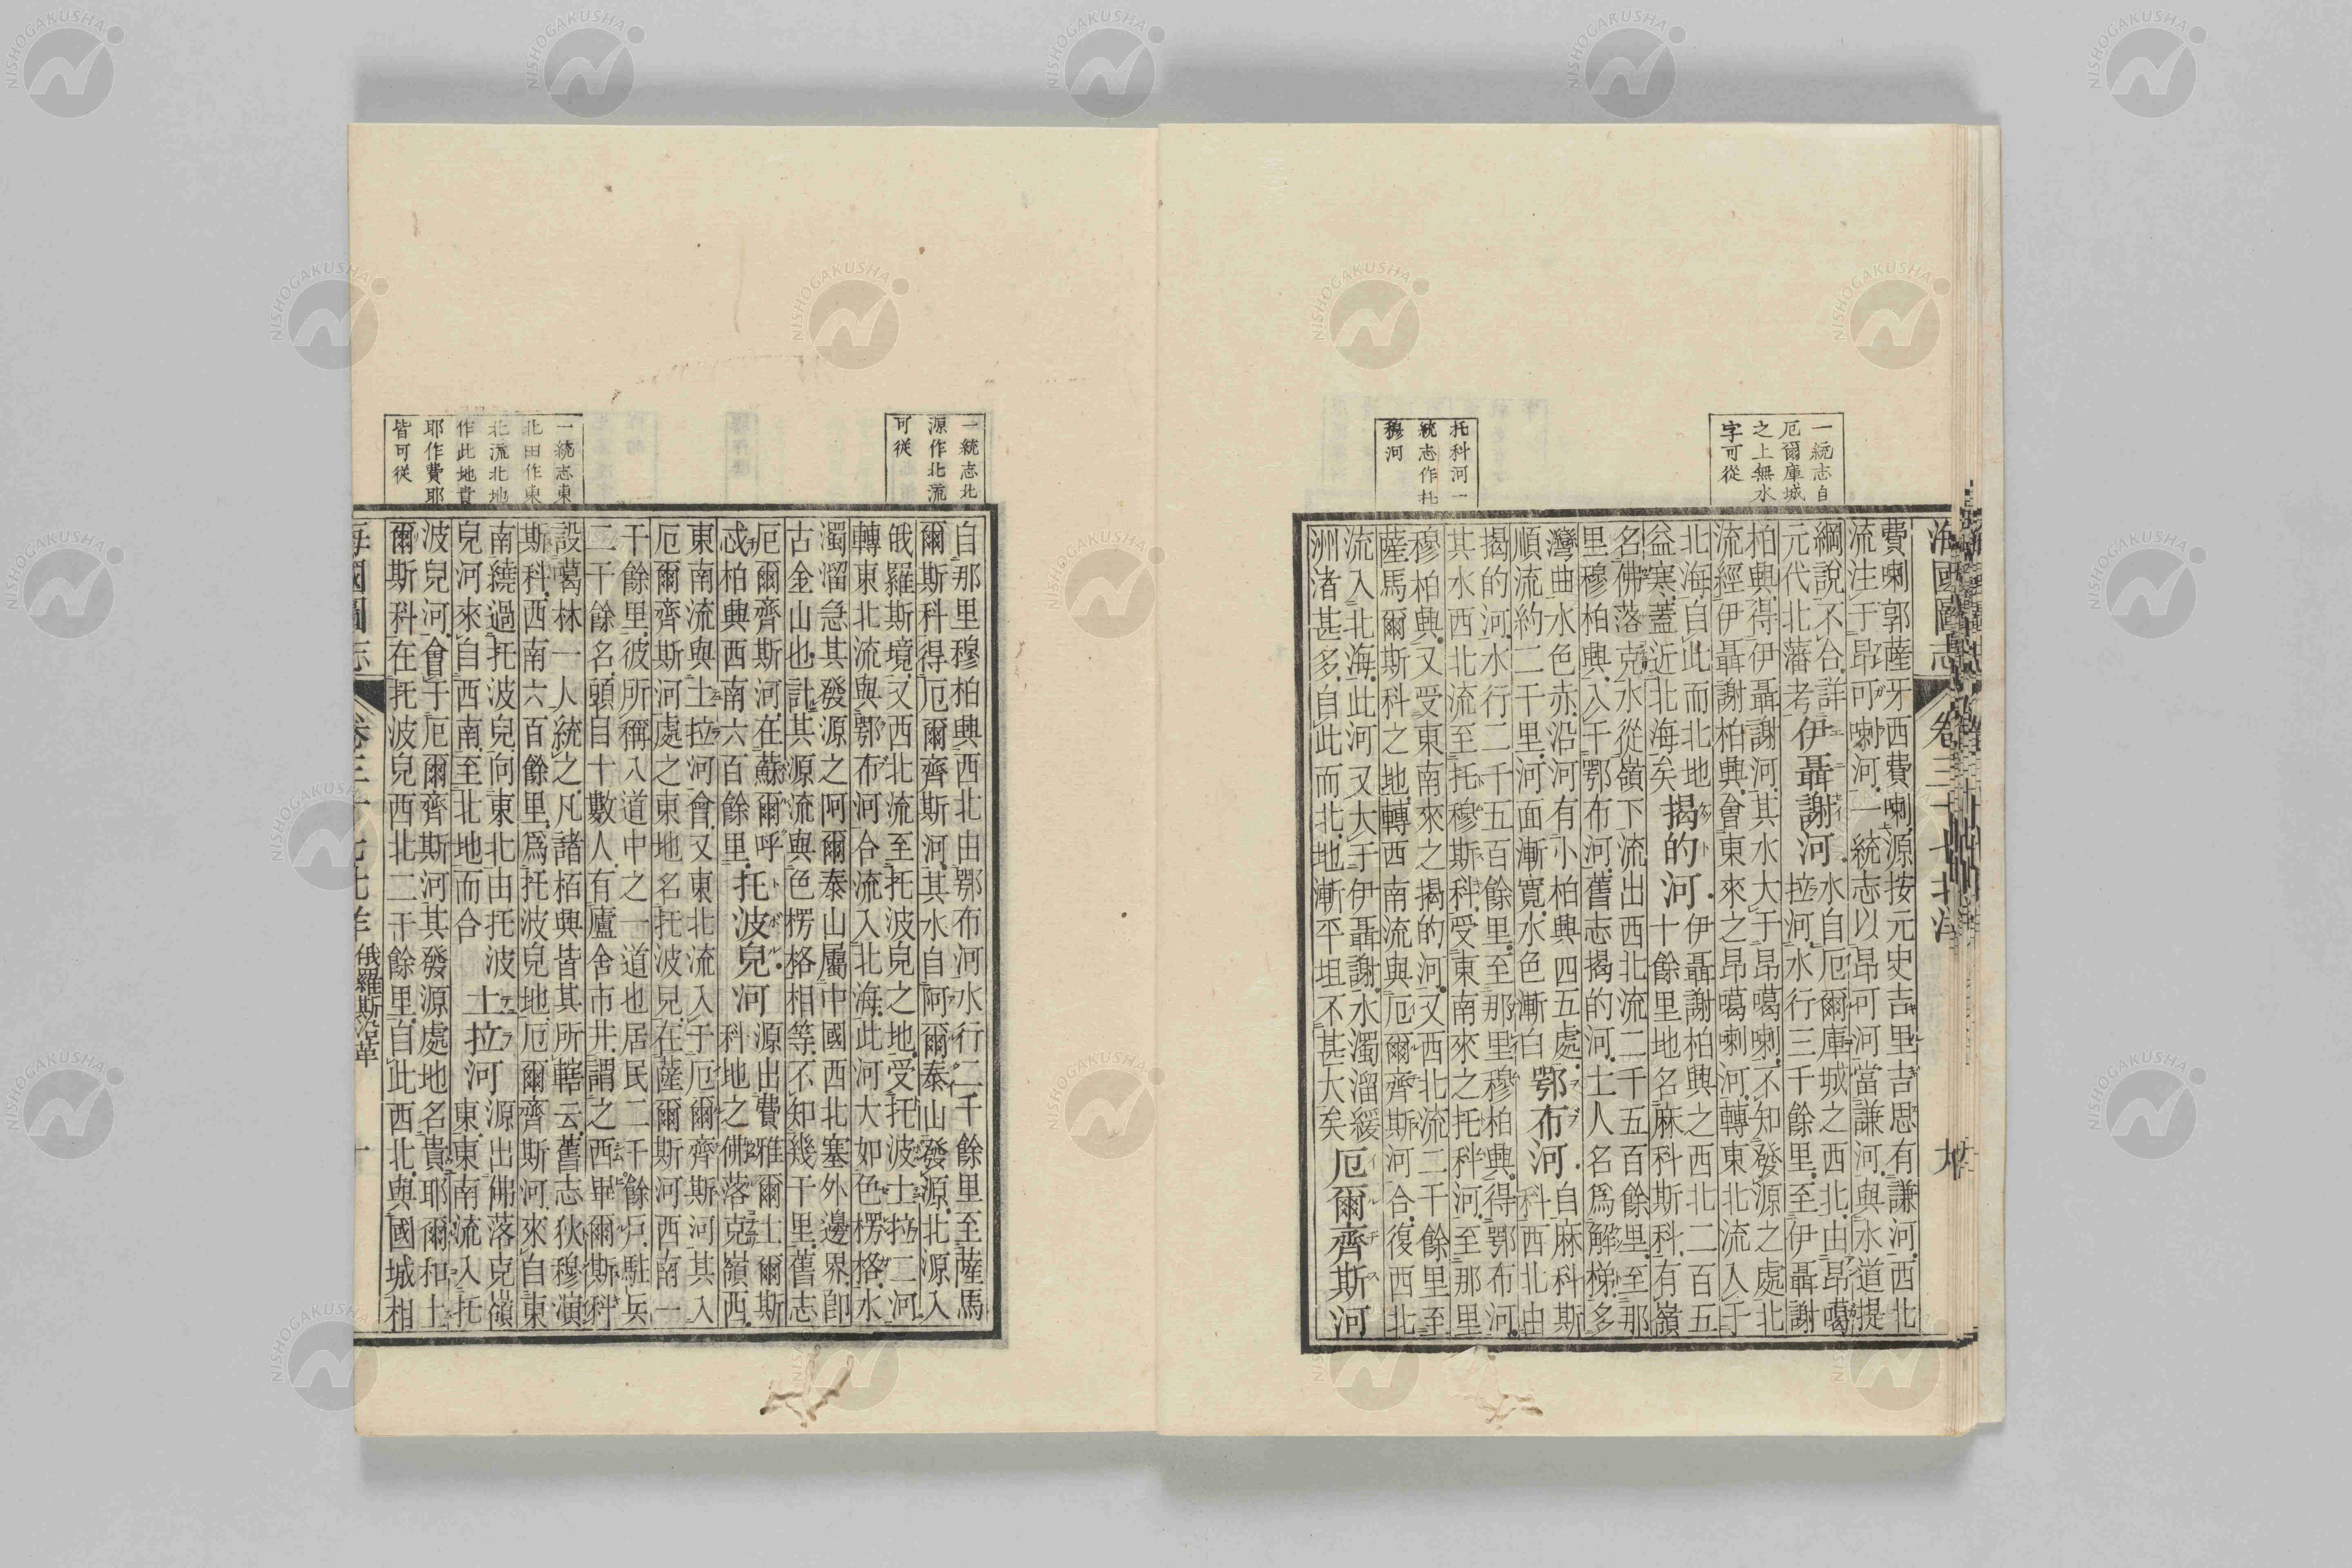 NISHOGAKUSHA
海國圖志 卷三十七北洋
一統志自
厄爾庫城
之上無水
字可從
托科河一
統志作杜
穆河
費喇郭薩牙西費喇源按元史吉里吉思有謙河西北
流注于昂可喇河一統志以昂可河當謙河與水道提
綱說不合詳
元代北藩考
伊聶謝河
水自厄爾庫城之西北由昂噶
拉河水行三千餘里至伊聶謝
柏興得伊聶謝河其水大于昂噶喇不知發源之處北
流經伊聶謝柏興會東來之昂噶喇河轉東北流入于
北海自此而北地
益寒蓋近北海矣
揭的河
伊聶謝柏興之西北二百五
十餘里地名麻科斯科有嶺
名佛落克水從嶺下流出西北流二千五百餘里至那
里穆柏興入于鄂布河舊志揭的河土人名爲解梯多
灣曲水色赤沿河有小柏興四五處
順流約二千里河面漸寬水色漸白
鄂布河
自麻科斯
科西北由
揭的河水行二千五百餘里至那里穆柏興得鄂布河
其水西北流至托穆斯科受東南來之托科河至那里
穆柏興又受東南來之揭的河又西北流二千餘里至
薩馬爾斯科之地轉西南流與厄爾齊斯河合復西北
流入北海此河又大于伊聶謝水濁溜緩
洲渚甚多自此而北地漸平坦不甚大矣
厄爾齊斯河
一統志北
源作北流
可從
一統志東
北田作東
北流北地
作此地貴
耶作費耶
皆可從
自那里穆柏興西北由鄂布河水行二千餘里至薩馬
爾斯科得厄爾齊斯河其水自阿爾泰山發源北源入
俄羅斯境又西北流至托波兒之地受托波土拉二河
轉東北流與鄂布河合流入北海此河大如色楞格水
濁溜急其發源之阿爾泰山屬中國西北塞外邊界卽
古金山也計其源流與色楞格相等不知幾千里舊志
厄爾齊斯河在蘇爾呼
忒柏興西南六百餘里
托波兒河
源出費雅爾土爾斯
科地之佛落克嶺西
東南流與土拉河會又東北流入于厄爾齊斯河其入
厄爾齊斯河處之東地名托波兒在薩爾斯河西南一
千餘里彼所稱入道中之一道也居民二千餘戶駐兵
二千餘名頭目十數人有廬舍市井謂之西畢爾斯科
設噶林一人統之凡諸栢興皆其所轄云舊志狄穆演
斯科西南六百餘里爲托波兒地厄爾齊斯河來自東
南繞過托波兒向東北由托波
兒河來自西南至北地而合
土拉河
源出佛落克嶺
東東南流入托
波兒河會于厄爾齊斯河其發源處地名貴耶爾和土
爾斯科在托波兒西北二千餘里自此西北與國城相
海國圖志 卷三十七北洋 俄羅斯沿革